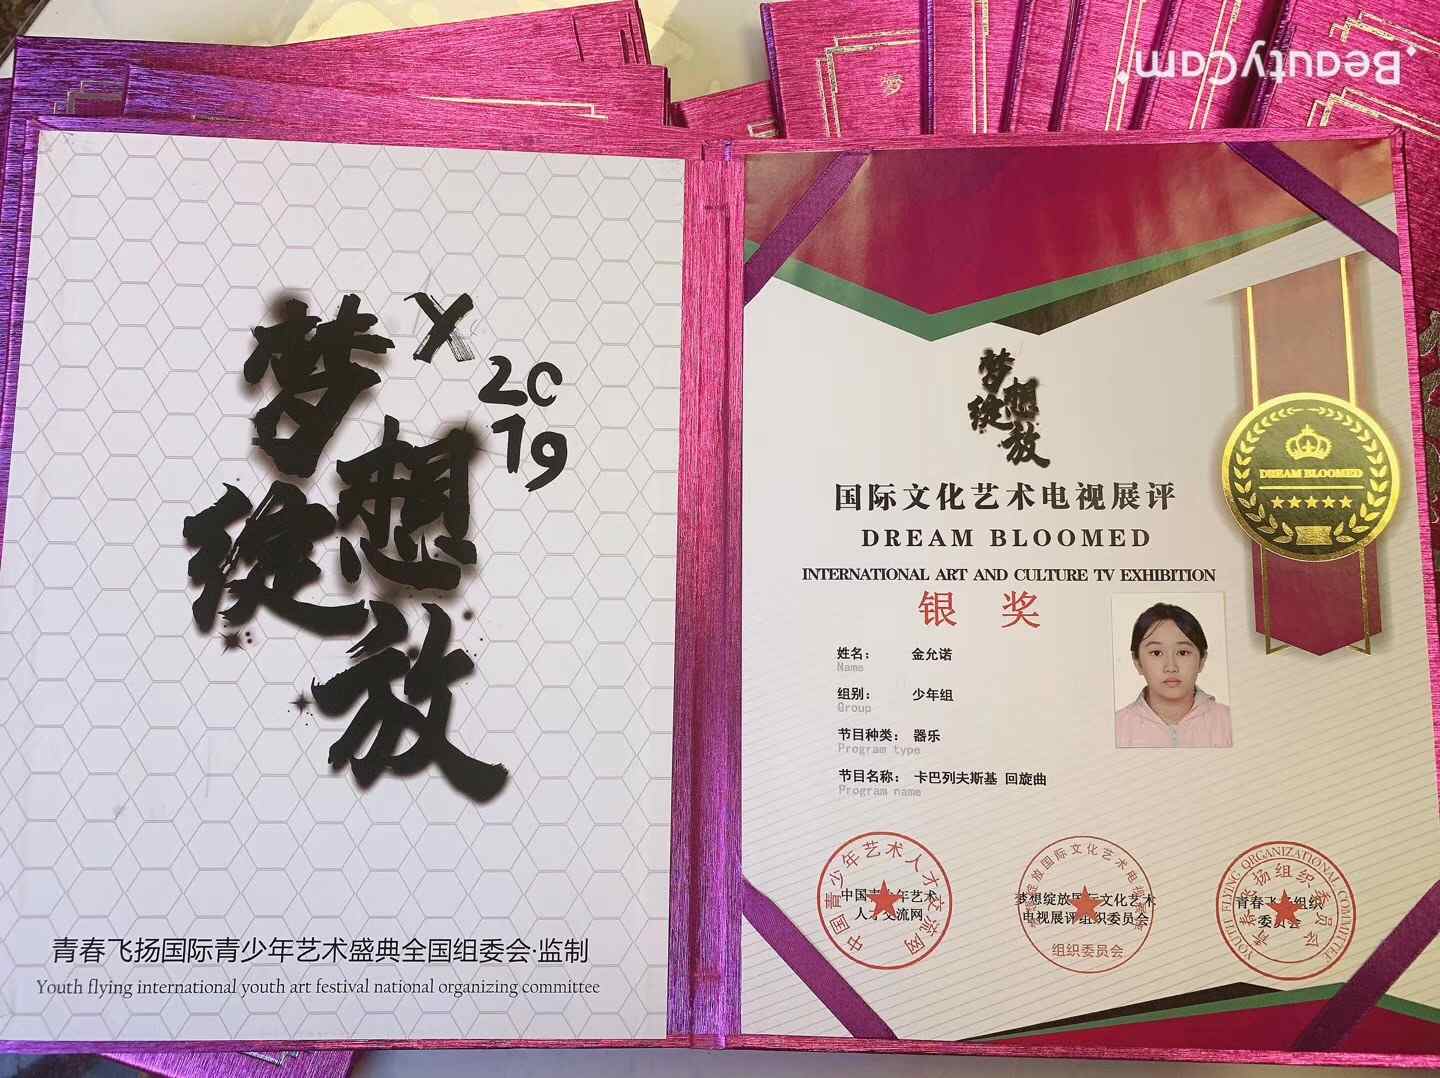 BeautyCam
梦
梦 X
想 20
绽 19
放
青春飞扬国际青少年艺术盛典全国组委会·监制
Youth flying international youth art festival national organizing committee
梦想
绽放
国际文化艺术电视展评
DREAM BLOOMED
INTERNATIONAL ART AND CULTURE TV EXHIBITION
银 奖
DREAM BLOOMED
姓名： 金允诺
Name
组别： 少年组
Group
节目种类： 器乐
Program type
节目名称： 卡巴列夫斯基 回旋曲
Program name
中国青少年艺术人才交流网
中国青少年艺术
人才交流网
梦想绽放国际文化艺术
电视展评组织委员会
组织委员会
YOUTH FLYING ORGANIZATIONAL COMMITTEE
青春飞扬组织委员会
青春飞扬组织
委员会